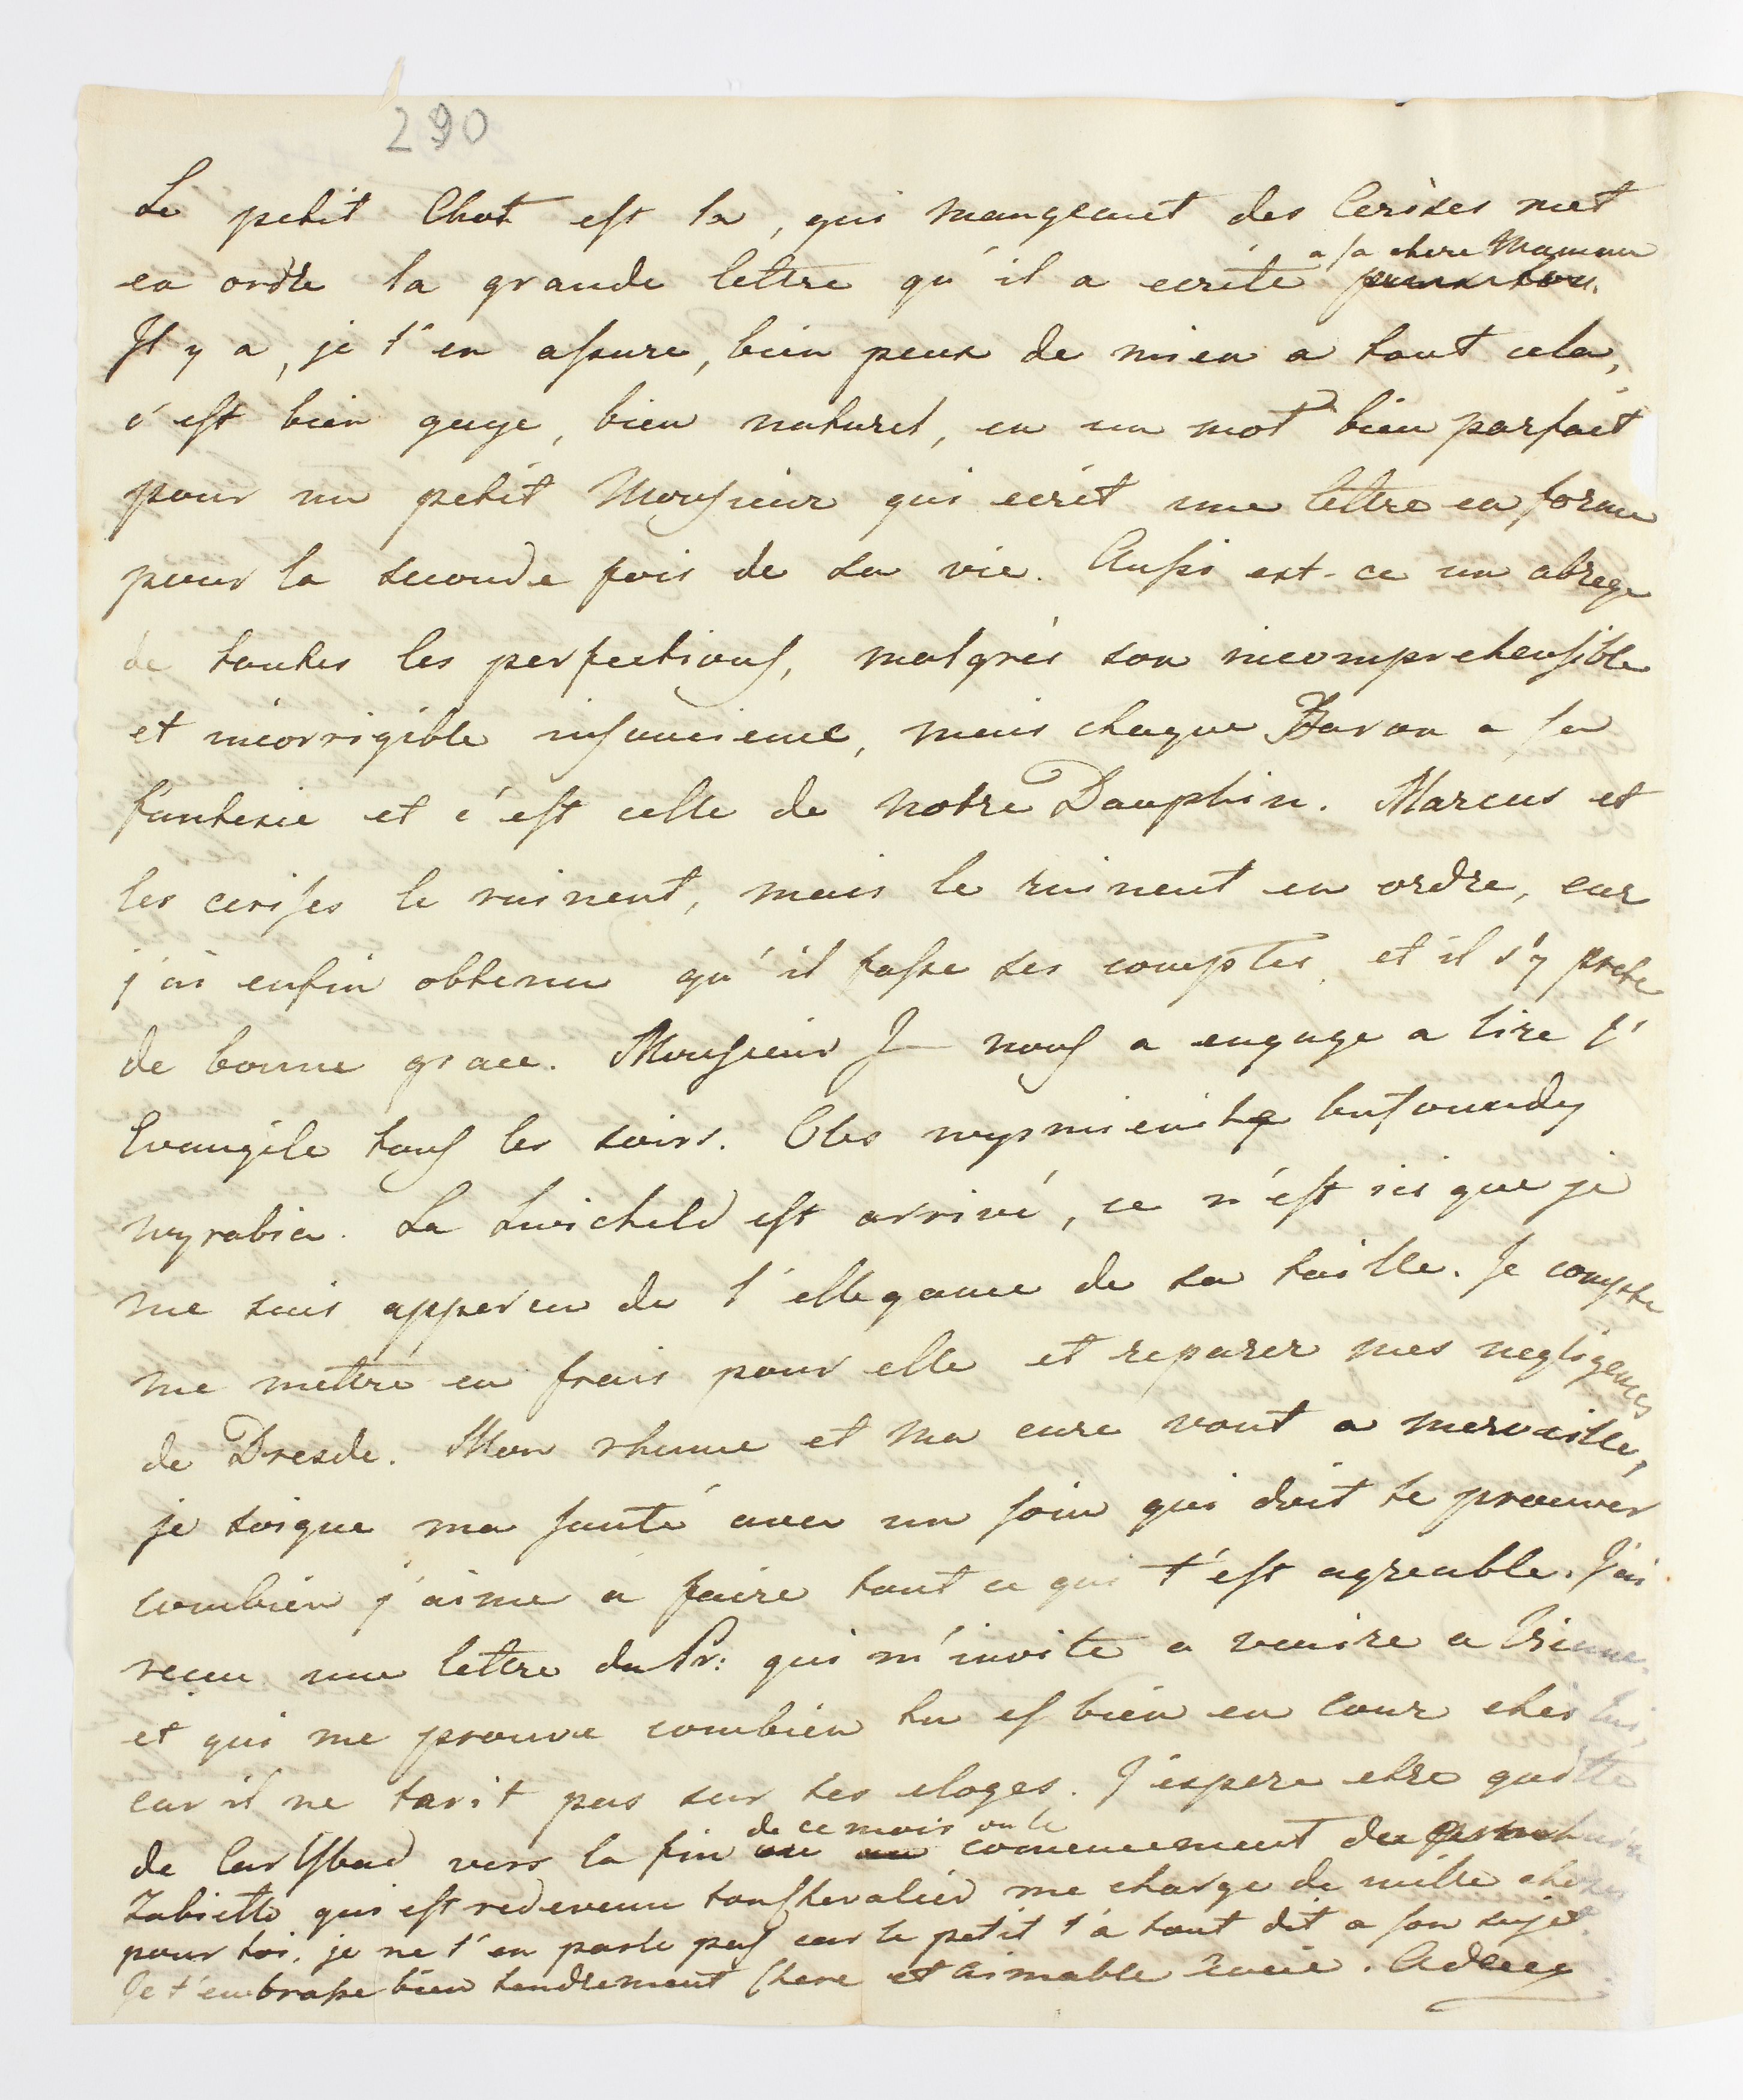 290
Le petit Chat est la, qui mangeant des Cerises met
en ordre la grande lettre qu'il a ecrite a sa chere Maman
Il y a, je t'en assure, bien peux de mien a tout cela,
c'est bien gaye, bien naturel, en un mot bien parfait
pour un petit Monsieur qui ecrit une lettre en forme
pour la seconde fois de sa vie. Aussi est-ce un abrege
de toutes les perfections, malgrés son incomprehensible
et incorrigible insoucience, mais chaque Baron a sa
fantesie et c'est celle de notre Dauphin. Marcus et
les cerises le ruinent, mais le ruinent en ordre, car
j'ai enfin obtenu qu'il fasse ses comptes, et il s'y prete
de bonne grace. Monsieur J nous a engage a lire l'
Evangile tous les soirs. Cles
wyrabia. La est arrivé, ce n'est ici que je
me suis appercu de l'ellegance de sa taille. Je compte
me mettre en frais pour elle et reparer mes negligences
de Dresde. Mon rhume et ma cure vont a merveille,
je soigne ma santé avec un soin qui doit te prouver
combien j'aime a faire tout ce qui t'est agreable. J'ai
recu une lettre du Pr: qui m'invite a venire a Vienne,
et qui me prouve combien tu es bien en cour ches lui,
car il ne tarit pas sur tes eloges. J'espere etre quitte
de Carlsbad vers la fin de ce mois ou le comencement du
Zabiello qui est redevenu me charge de mille choses
pour toi, je ne t'en parle pas car le petit t'a tout dit a son sujet.
Je t'embrasse bien tendrement Chere et aimable